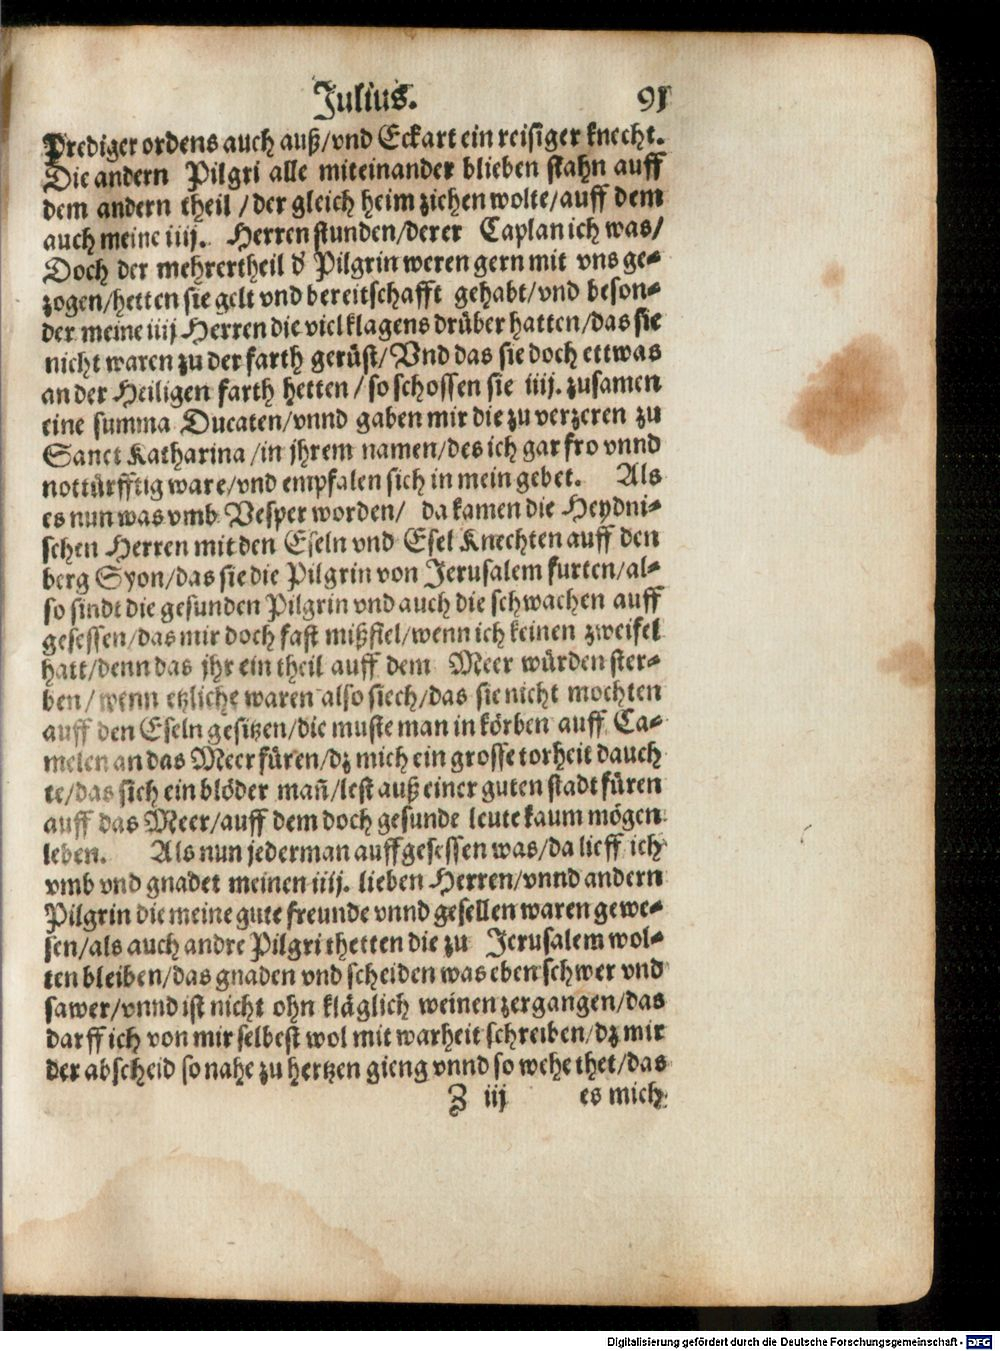 Julius. 91
Prediger ordens auch auß/vnd Eckart ein reisiger knecht.
Die andern Pilgri alle miteinander blieben stahn auff
dem andern theil /der gleich heim ziehen wolte/auff dem
auch meine iiij. Herren stunden/derer Caplan ich was/
Doch der mehrertheil d' Pilgrin weren gern mit vns ge-
zogen/hetten sie gelt vnd bereitschafft gehabt/vnd beson-
der meine iiij Herren die viel klagens drüber hatten/das sie
nicht waren zu der farth gerüst/Vnd das sie doch ettwas
an der Heiligen farth hetten /so schossen sie iiij. zusamen
eine summa Ducaten/vnnd gaben mir die zu verzeren zu
Sanct Katharina /in jhrem namen/des ich gar fro vnnd
nottürfftig ware/vnd empfalen sich in mein gebet. Als
es nun was vmb Vesper worden/ da kamen die Heydni-
schen Herren mit den Eseln vnd Esel Knechten auff den
berg Syon/das sie die Pilgrin von Jerusalem furten/al-
so sindt die gesunden Pilgrin vnd auch die schwachen auff
gesessen/das mir doch fast mißfiel/wenn ich keinen zweifel
hatt/denn das jhr ein theil auff dem Meer würden ster-
ben/wenn etzliche waren also siech/das sie nicht mochten
auff den Eseln gesitzen/die muste man in körben auff Ca-
melen an das Meer füren/dz mich ein grosse torheit dauch
te/das sich ein blöder man̄/lest auß einer guten stadt füren
auff das Meer/auff dem doch gesunde leute kaum mögen
leben. Als nun jederman auffgesessen was/da lieff ich
vmb vnd gnadet meinen iiij. lieben Herren/vnnd andern
Pilgrin die meine gute freunde vnnd gesellen waren gewe-
sen/als auch andre Pilgri thetten die zu Jerusalem wol-
ten bleiben/das gnaden vnd scheiden was eben schwer vnd
sawer/vnnd ist nicht ohn kläglich weinen zergangen/das
darff ich von mir selbest wol mit warheit schreiben/dz mir
der abscheid so nahe zu hertzen gieng vnnd so wehe thet/das
Z iij es mich
Digitalisierung gefördert durch die Deutsche Forschungsgemeinschaft - DFG